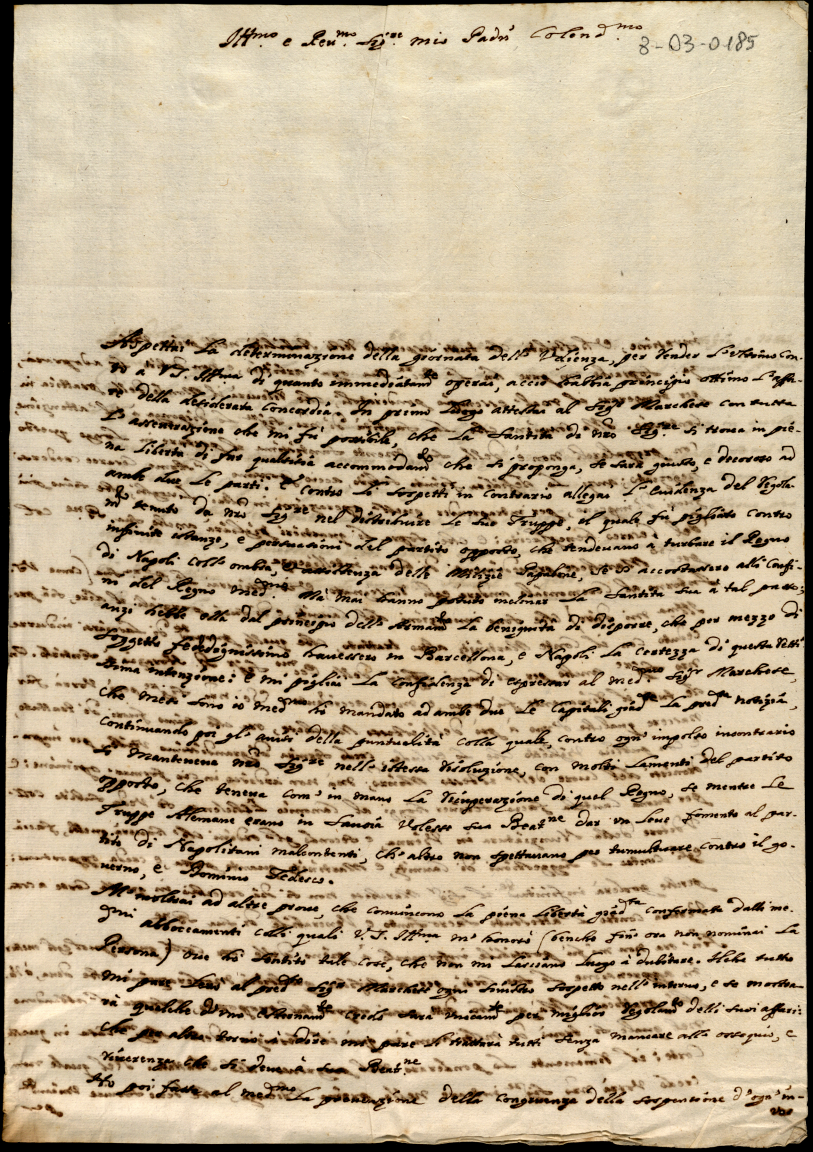 Ill.mo e Rev.mo Sig.re mio Padn Colend.mo
8-03-0185
Aspettai la determinazione della giornata dell' Udienza, per render l'ultimo con-
to a V.S. Ill.ma di quanto immediatam.te operai, acciò habbia principio ottimo l'affa-
re della desiderata concordia. In primo luogo attestai al Sig.r Marchese con tutta
l'asseurazione che mi fù possibile, che la Santità di nro Sig.re si troua in pie-
na libertà di fus qualsisia accommodam.to che si proponga, se sarà giusto, e decoroso ad
ambe due le parti. E contro li sospetti in contrario allegai l'euidenza del Regola-
m.to tenuto da nro Sig.re nel distribuire le sue Truppe, il quale fù pigliato contro
infinite istanze, e persuasioni del partito opposto, che tendeuano à turbare il Regno
di Napoli coll'ombra, e assistenza delle Milizie Papaline, se si accostauano alli Confi-
ni del Regno med.mo Ma mai hanno potuto inclinar la Santità sua à tal passo;
anzi hebbe sin dal principio dell' Armam.to la benignità di disporre, che per mezzo di
soggetti fededegnissimi hauessero in Barcellona, e Napoli la certezza di questa retti-
ssima intenzione: e mi pigliai la confidenza di espressar al med.mo Sig.r Marchese,
che mesi sono io med.mo hò mandato ad ambe due le Capitali pred.e la pred.ta notizia,
continuando poi gl'auisi della puntualità colla quale, contro ogn' impulso incontrario
si manteneua nro Sig.re nell' istessa risoluzione, con molti lamenti del partito
opposto, che teneua com' in mano la recuperazione di quel Regno, se mentre le
Truppe Alemane erano in Sauoia volesse sua Beat.ne dar un leue fomento al par-
tito di Napolitani malcontenti, ch' altro non aspettauano per tumultuare contro il go-
uerno, e Dominio Tedesco.
M' inoltrai ad altre proue, che conuincono la piena libertà pred.ta confermata dalli me-
d.mi abboccamenti colli quali V.S. Ill.ma m' honorò (benche fin' ora non nominai la
Persona) oue hò sentito tali cose, che non mi lasciano luogo à dubitare.
Mi pare leuai al pred.to Sig.r Marchese ogni simile sospetto nell' interno, e se mostra-
rà qualche d'uno esternam.te credo sarà meram.te per miglior regolam.to delli suoi affari:
che per altro mi pare si trattarà tutti senza mancare all' ossequio, e
riuerenza che si deue à sua Beat.ne
Hò poi fatto al med.mo la della congruenza della sospensione d' ogn' in-